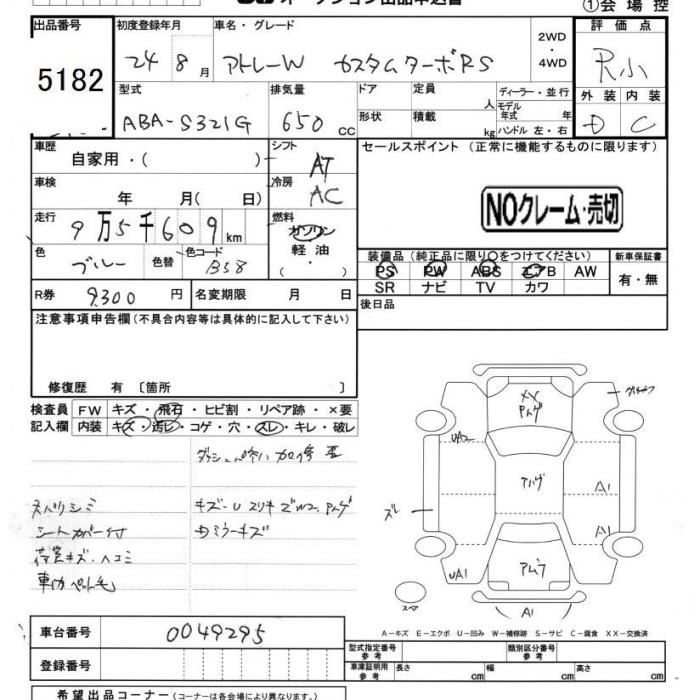 オークション出品申込書
①会場控
出品番号 初度登録年月 車名・グレード 評価点
5182 24年 8月 アトレーW カスタムターボRS 2WD・4WD R小
型式 排気量 ドア 定員 人 ディーラー・並行 外装 内装
ABA-S321G 650 CC 形状 積載 kg モデル年式 年 ハンドル 左・右 D C
車歴 シフト セールスポイント (正常に機能するものに限ります)
自家用・( ) AT
車検 冷房
年 月( 日) AC
NOクレーム・売切
走行 燃料
9万5千609km ガソリン・軽油・( )
装備品 (純正品に限り○をつけてください) 新車保証書
色 ブルー 色替 色コード B58
PS PW ABS エアB AW 有・無
SR ナビ TV カワ
R券 9300円 名変期限 月 日
後日品
注意事項申告欄(不具合内容等は具体的に記入して下さい)
修復歴 有〔箇所 〕
検査員記入欄 FW キズ・飛石・ヒビ割・リペア跡・×要
内装 キズ・汚レ・コゲ・穴・スレ・キレ・破レ
スベリシミ
シートカバー付
荷室キズ、ヘコミ
車内ペット毛
XX
UA2
A1
ズレ
A1
UA1
スペア
A1
A-キズ E-エクボ U-凹み W-補修跡 S-サビ C-腐食 XX-交換済
車台番号 0049295
登録番号
型式指定番号 参考 類別区分番号 参考
車庫証明用 参考 長さ cm 幅 cm 高さ cm
希望出品コーナー(コーナーは各会場により異なります。)